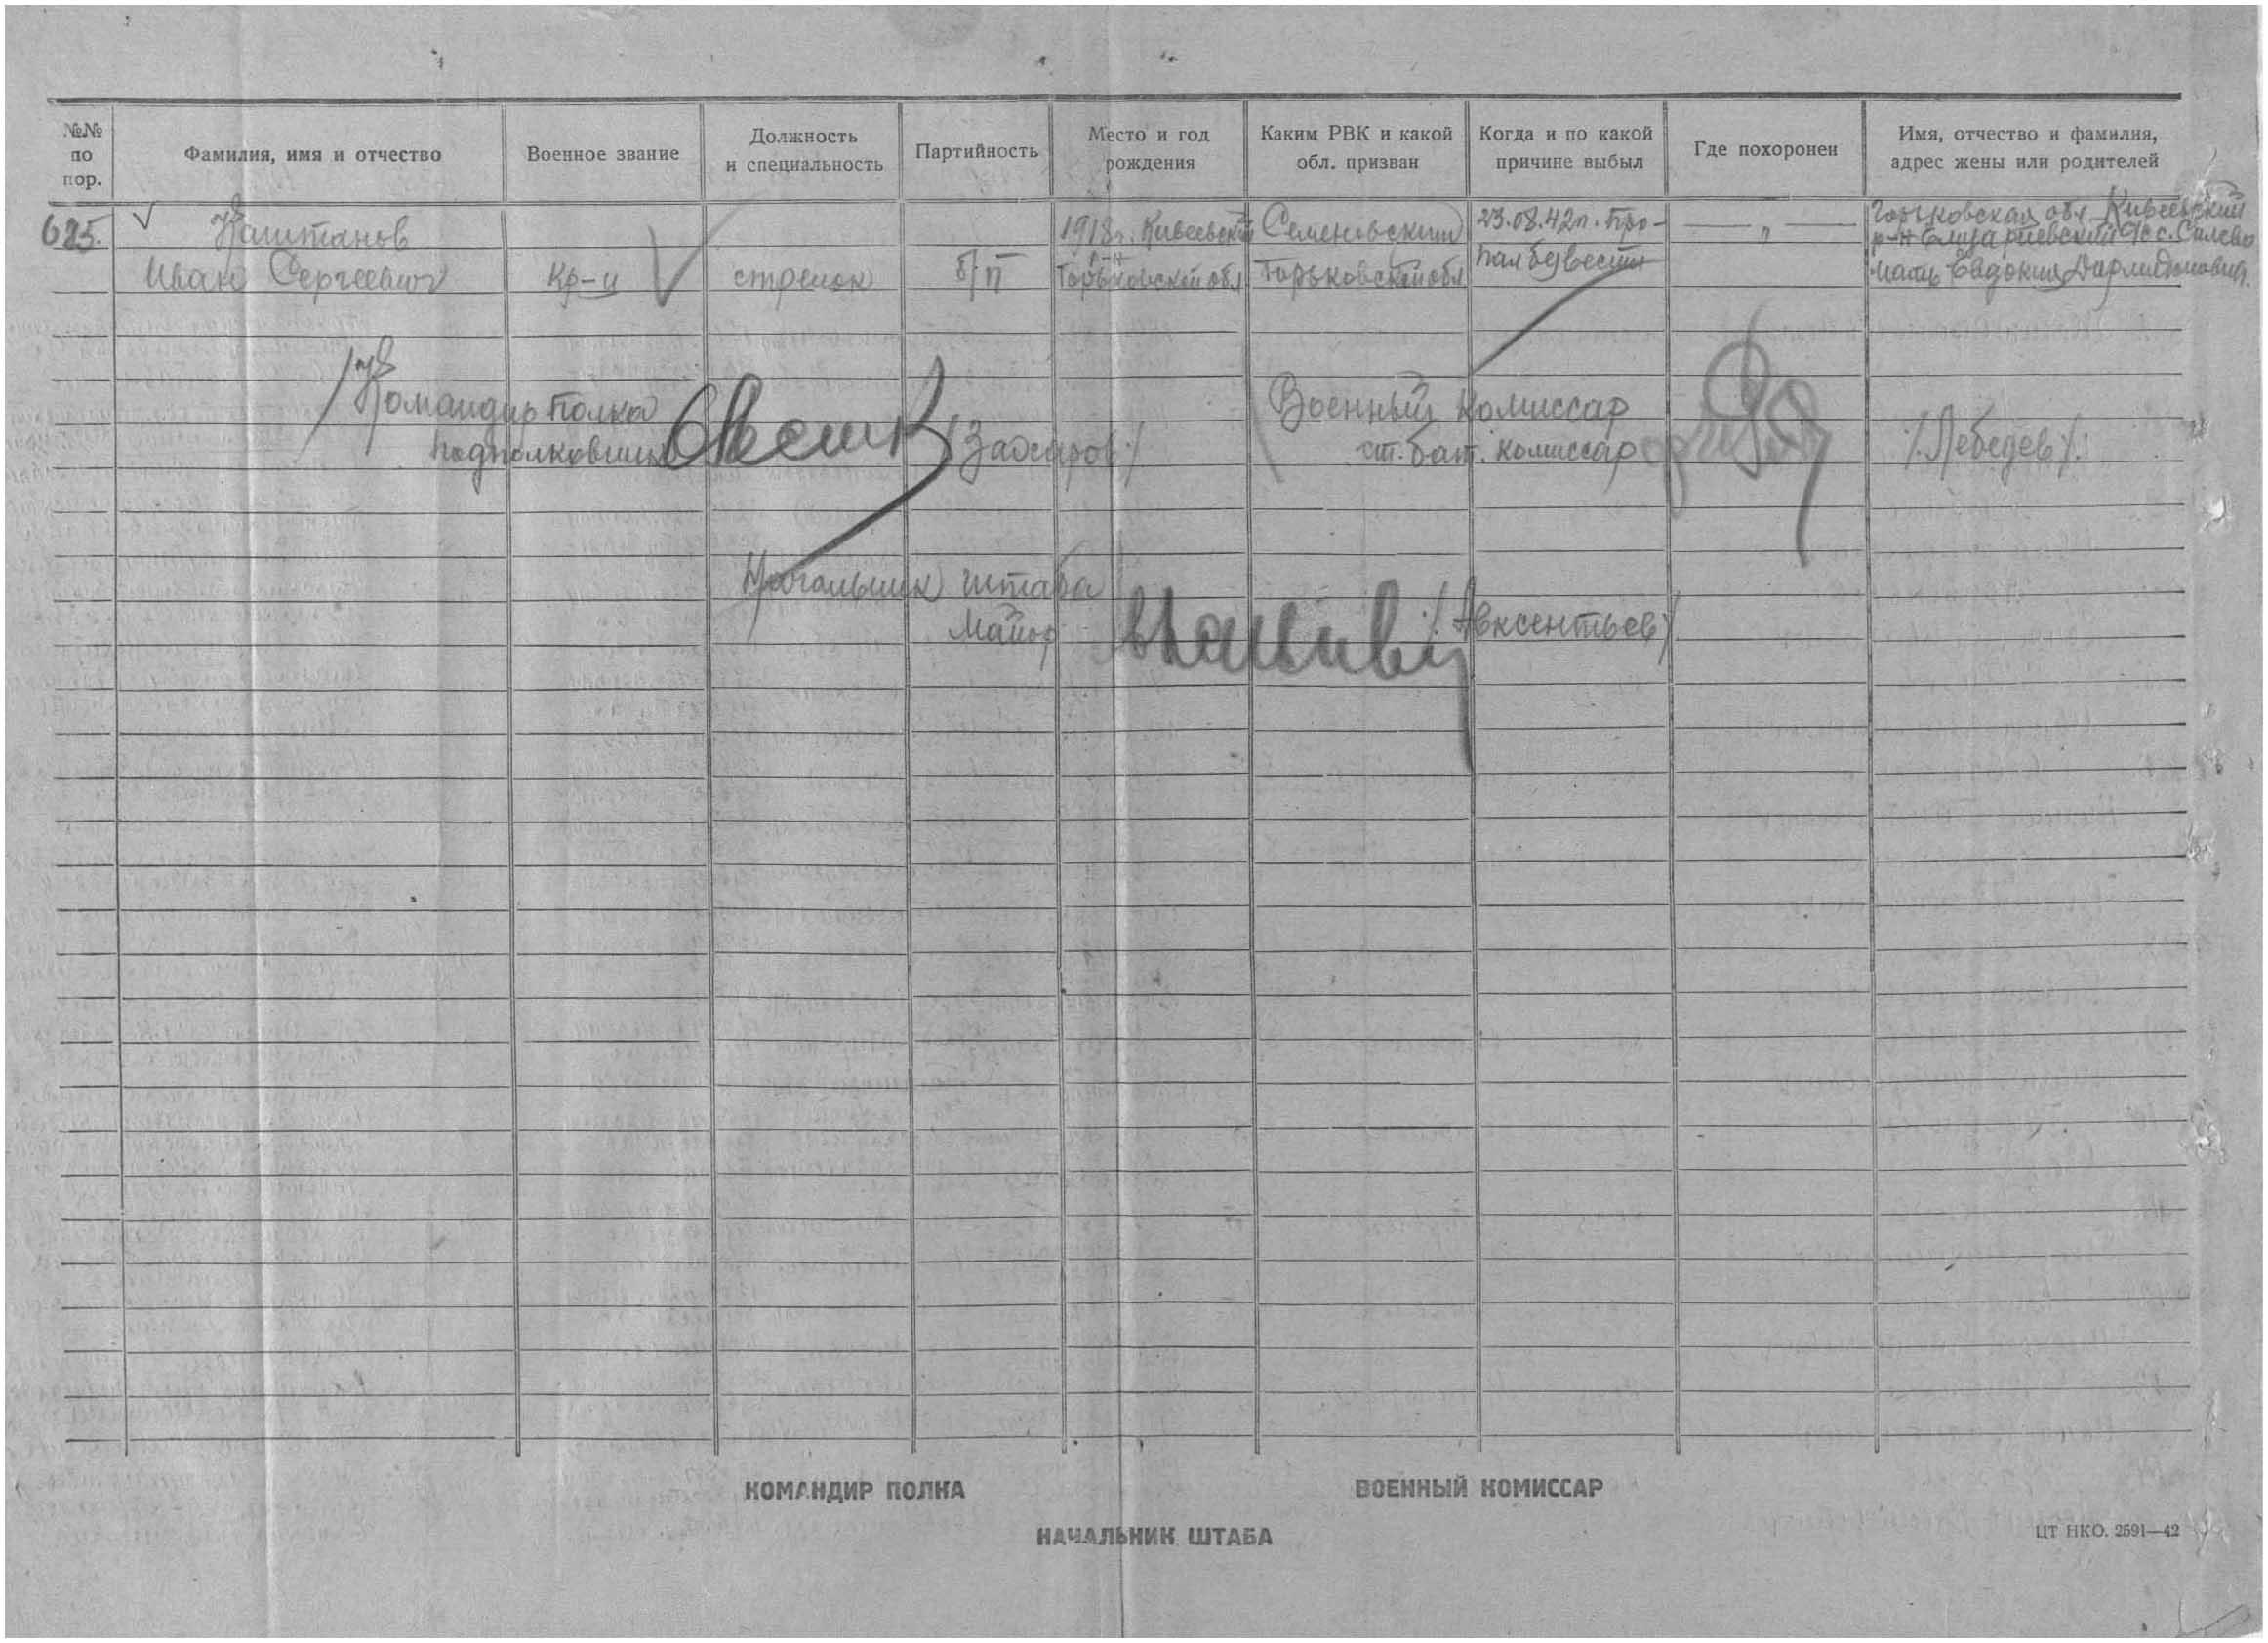 №№ по пор.
Фамилия, имя и отчество
Военное звание
Должность и специальность
Партийность
Место и год рождения
Каким РВК и какой обл. призван
Когда и по какой причине выбыл
Где похоронен
Имя, отчество и фамилия, адрес жены или родителей
625.
Каштанов
Иван Сергеевич
кр-ц
стрелок
б/п
1918г.
р-н
Горьковской обл
Семеновским
Горьковской обл
23.08.42г. Про-
пал безвести
— " —
Горьковская обл
р-н Елизарьевский с/с с.
мать Евдокия
Командир полка
подполковник
/Захаров/
Военный комиссар
ст. бат. комиссар
/Лебедев/
Начальник штаба
Майор
/Авксентьев/
КОМАНДИР ПОЛКА
ВОЕННЫЙ КОМИССАР
НАЧАЛЬНИК ШТАБА
ЦТ НКО. 2591—42